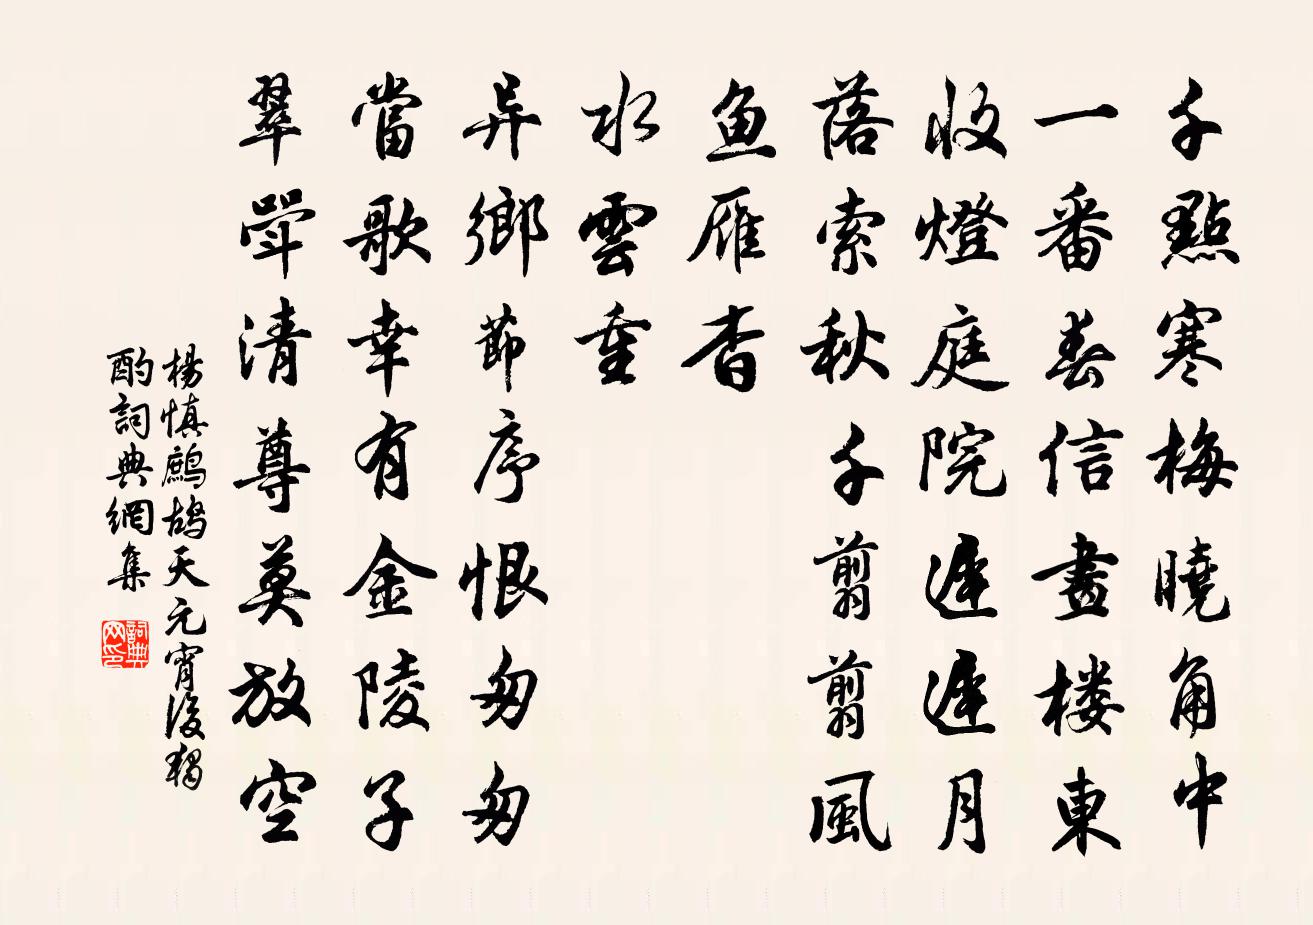 千點寒梅曉角中
一番春信畫楼東
收燈庭院遲遲月
落索秋千翦翦風
魚雁杳
水雲重
异鄉節序恨匆匆
當歌幸有金陵子
翠斝清尊莫放空
楊慎鷓鴣天元宵後獨
酌詞典網集
詞典
网印